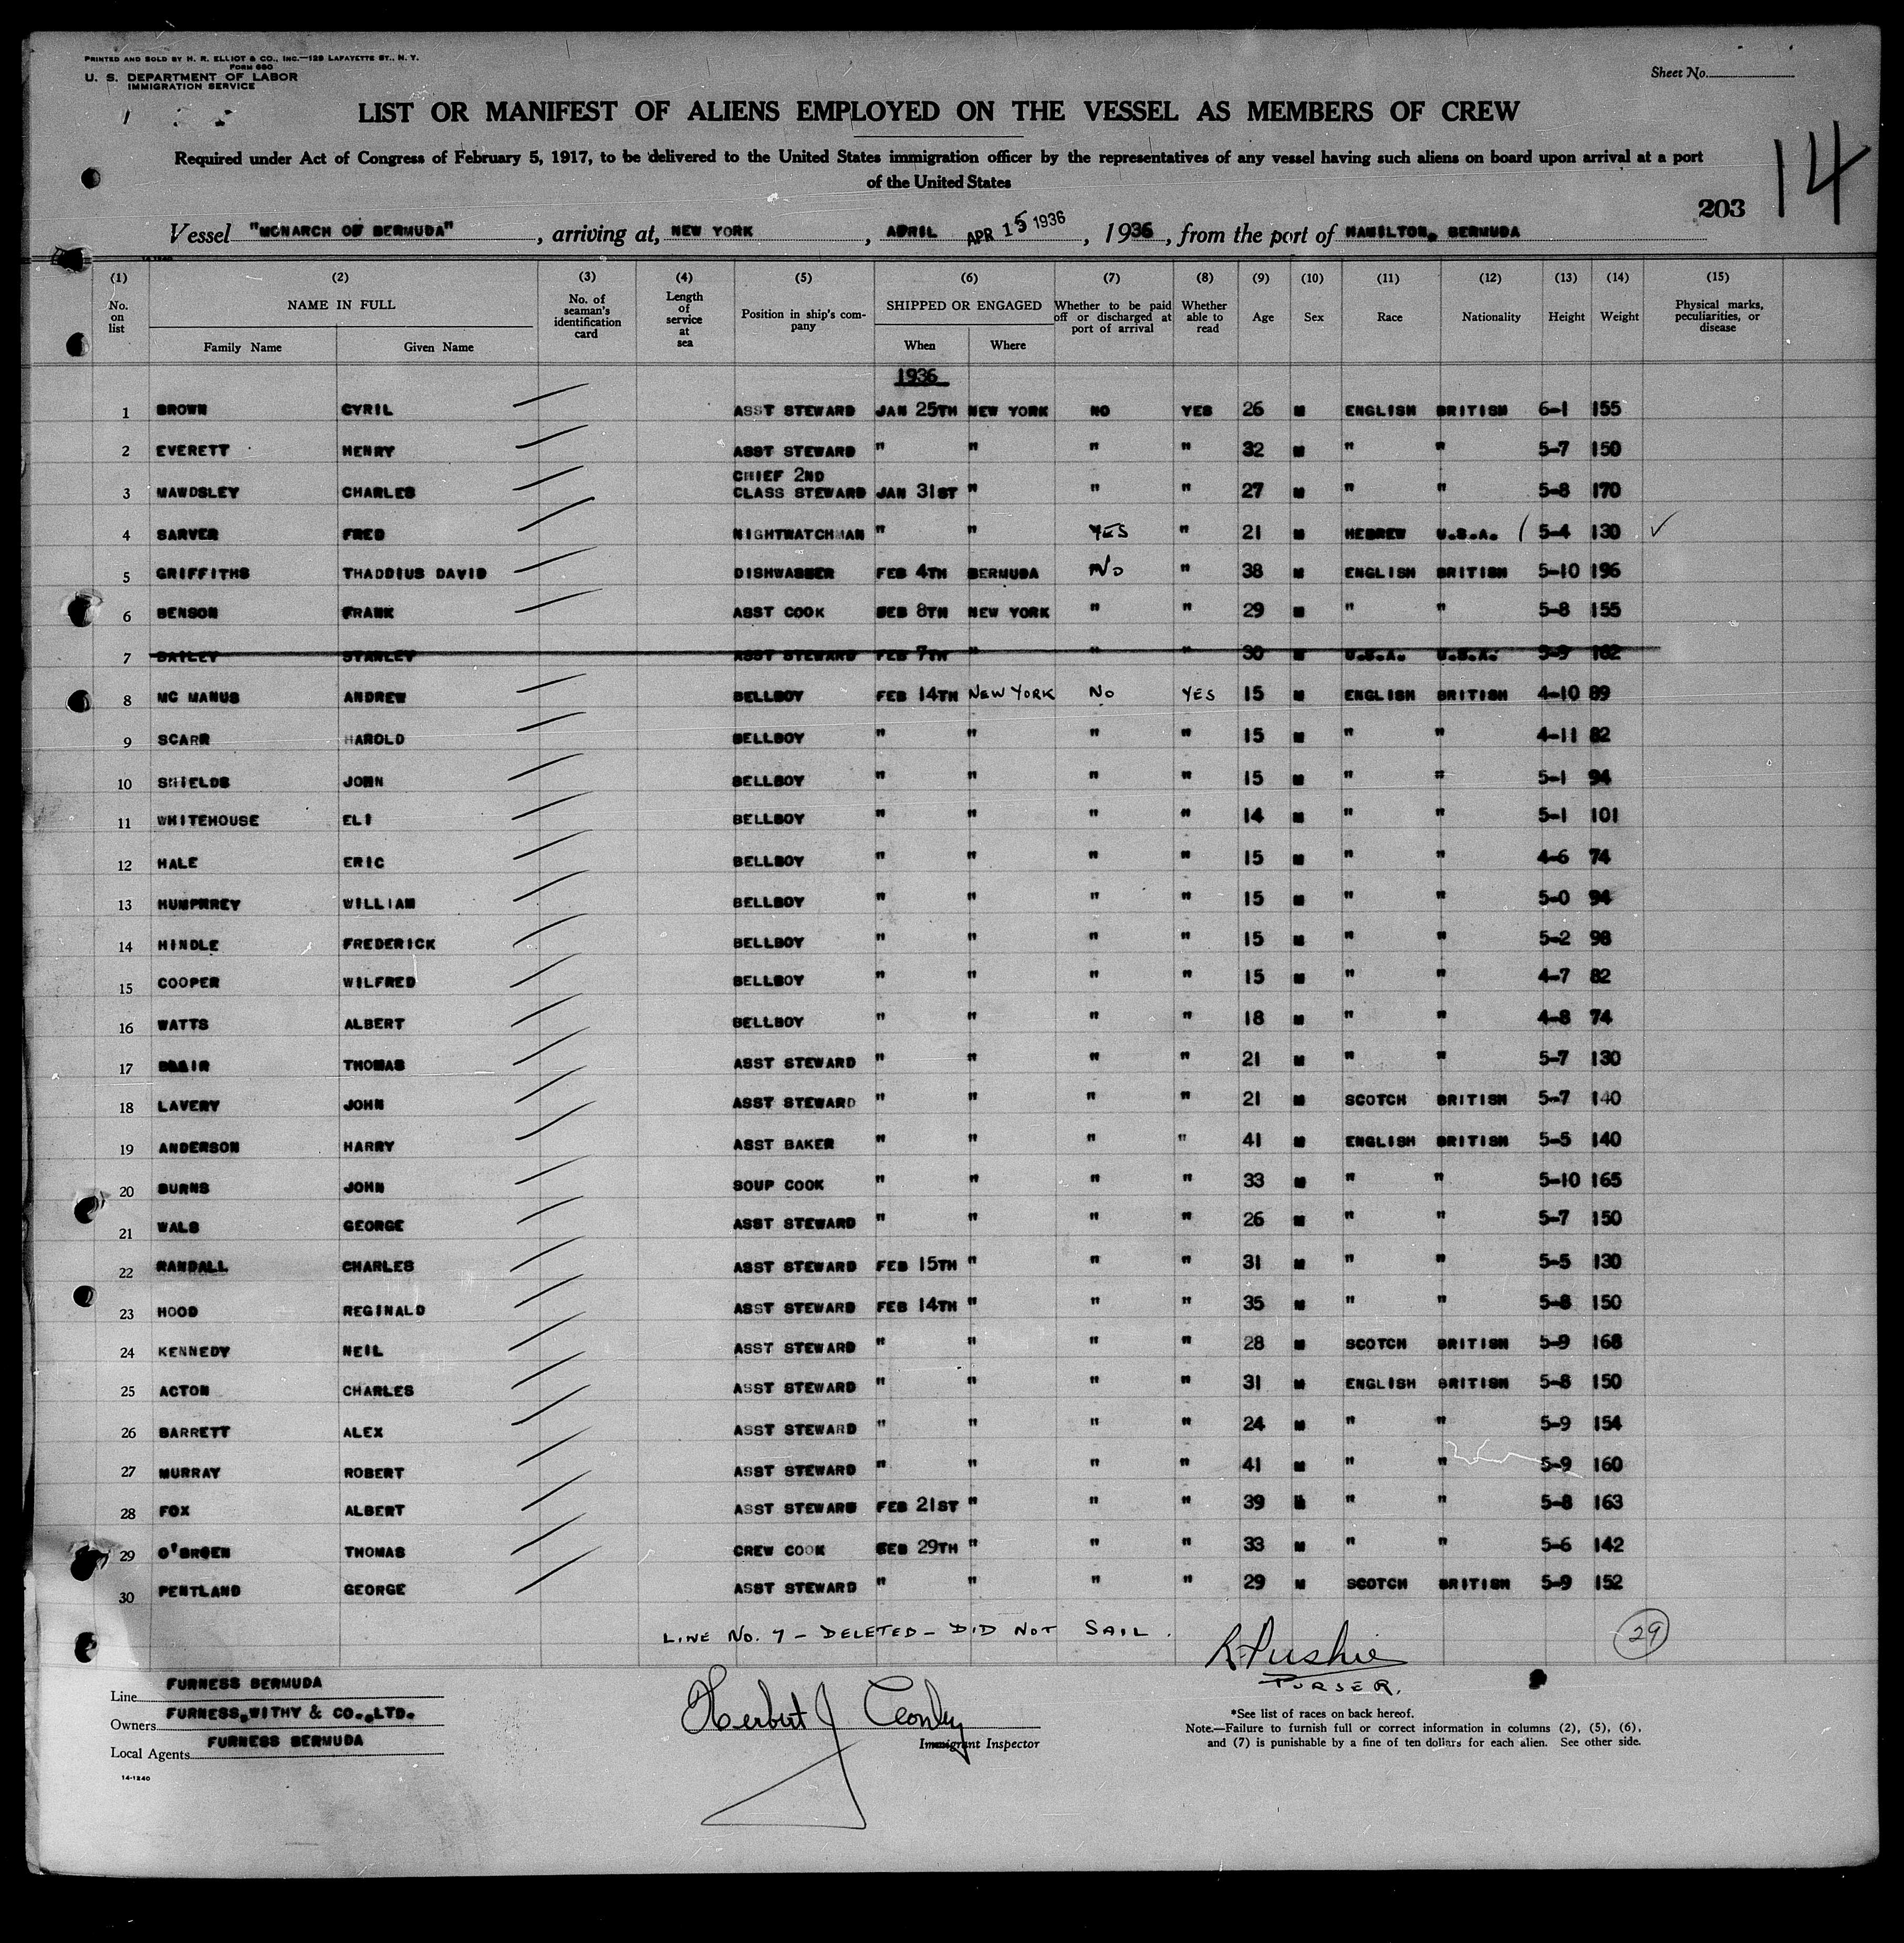 PRINTED AND SOLD BY H. R. ELLIOT & CO., INC.—129 LAFAYETTE ST., N. Y.
FORM 680
U. S. DEPARTMENT OF LABOR
IMMIGRATION SERVICE
Sheet No.
LIST OR MANIFEST OF ALIENS EMPLOYED ON THE VESSEL AS MEMBERS OF CREW
Required under Act of Congress of February 5, 1917, to be delivered to the United States immigration officer by the representatives of any vessel having such aliens on board upon arrival at a port
of the United States
14
203
Vessel "MONARCH OF BERMUDA", arriving at, NEW YORK, APRIL APR 15 1936, 1936, from the port of HAMILTON, BERMUDA
14-1240
(1) (2) (3) (4) (5) (6) (7) (8) (9) (10) (11) (12) (13) (14) (15)
No. on list NAME IN FULL Family Name Given Name No. of seaman's identification card Length of service at sea Position in ship's company SHIPPED OR ENGAGED When Where Whether to be paid off or discharged at port of arrival Whether able to read Age Sex Race Nationality Height Weight Physical marks, peculiarities, or disease
1936
1 BROWN CYRIL ASST STEWARD JAN 25TH NEW YORK NO YES 26 M ENGLISH BRITISH 6-1 155
2 EVERETT HENRY ASST STEWARD " " " " 32 M " " 5-7 150
CHIEF 2ND
3 MAWDSLEY CHARLES CLASS STEWARD JAN 31ST " " " 27 M " " 5-8 170
4 SARVER FRED NIGHTWATCHMAN " " YES " 21 M HEBREW U.S.A. ( 5-4 130 ✓
5 GRIFFITHS THADDIUS DAVID DISHWASHER FEB 4TH BERMUDA No " 38 M ENGLISH BRITISH 5-10 196
6 BENSON FRANK ASST COOK FEB 8TH NEW YORK " " 29 M " " 5-8 155
7 BAILEY STANLEY ASST STEWARD FEB 7TH " " " 30 M U.S.A. U.S.A. 5-9 162
8 MC MANUS ANDREW BELLBOY FEB 14TH NEW YORK No YES 15 M ENGLISH BRITISH 4-10 89
9 SCARR HAROLD BELLBOY " " " " 15 M " " 4-11 82
10 SHIELDS JOHN BELLBOY " " " " 15 M " " 5-1 94
11 WHITEHOUSE ELI BELLBOY " " " " 14 M " " 5-1 101
12 HALE ERIC BELLBOY " " " " 15 M " " 4-6 74
13 HUMPHREY WILLIAM BELLBOY " " " " 15 M " " 5-0 94
14 HINDLE FREDERICK BELLBOY " " " " 15 M " " 5-2 98
15 COOPER WILFRED BELLBOY " " " " 15 M " " 4-7 82
16 WATTS ALBERT BELLBOY " " " " 18 M " " 4-8 74
17 BLAIR THOMAS ASST STEWARD " " " " 21 M " " 5-7 130
18 LAVERY JOHN ASST STEWARD " " " " 21 M SCOTCH BRITISH 5-7 140
19 ANDERSON HARRY ASST BAKER " " " " 41 M ENGLISH BRITISH 5-5 140
20 BURNS JOHN SOUP COOK " " " " 33 M " " 5-10 165
21 WALS GEORGE ASST STEWARD " " " " 26 M " " 5-7 150
22 RANDALL CHARLES ASST STEWARD FEB 15TH " " " 31 M " " 5-5 130
23 HOOD REGINALD ASST STEWARD FEB 14TH " " " 35 M " " 5-8 150
24 KENNEDY NEIL ASST STEWARD " " " " 28 M SCOTCH BRITISH 5-9 168
25 ACTON CHARLES ASST STEWARD " " " " 31 M ENGLISH BRITISH 5-8 150
26 BARRETT ALEX ASST STEWARD " " " " 24 M " " 5-9 154
27 MURRAY ROBERT ASST STEWARD " " " " 41 M " " 5-9 160
28 FOX ALBERT ASST STEWARD FEB 21ST " " " 39 M " " 5-8 163
29 O'BROEN THOMAS CREW COOK FEB 29TH " " " 33 M " " 5-6 142
30 PENTLAND GEORGE ASST STEWARD " " " " 29 M SCOTCH BRITISH 5-9 152
LINE NO. 7 - DELETED - DID NOT SAIL.
R Pushie
PURSER.
29
Line FURNESS BERMUDA
Owners FURNESS, WITHY & CO., LTD.
Local Agents FURNESS BERMUDA
14-1240
Herbert J
Immigrant Inspector
*See list of races on back hereof.
Note.—Failure to furnish full or correct information in columns (2), (5), (6),
and (7) is punishable by a fine of ten dollars for each alien. See other side.